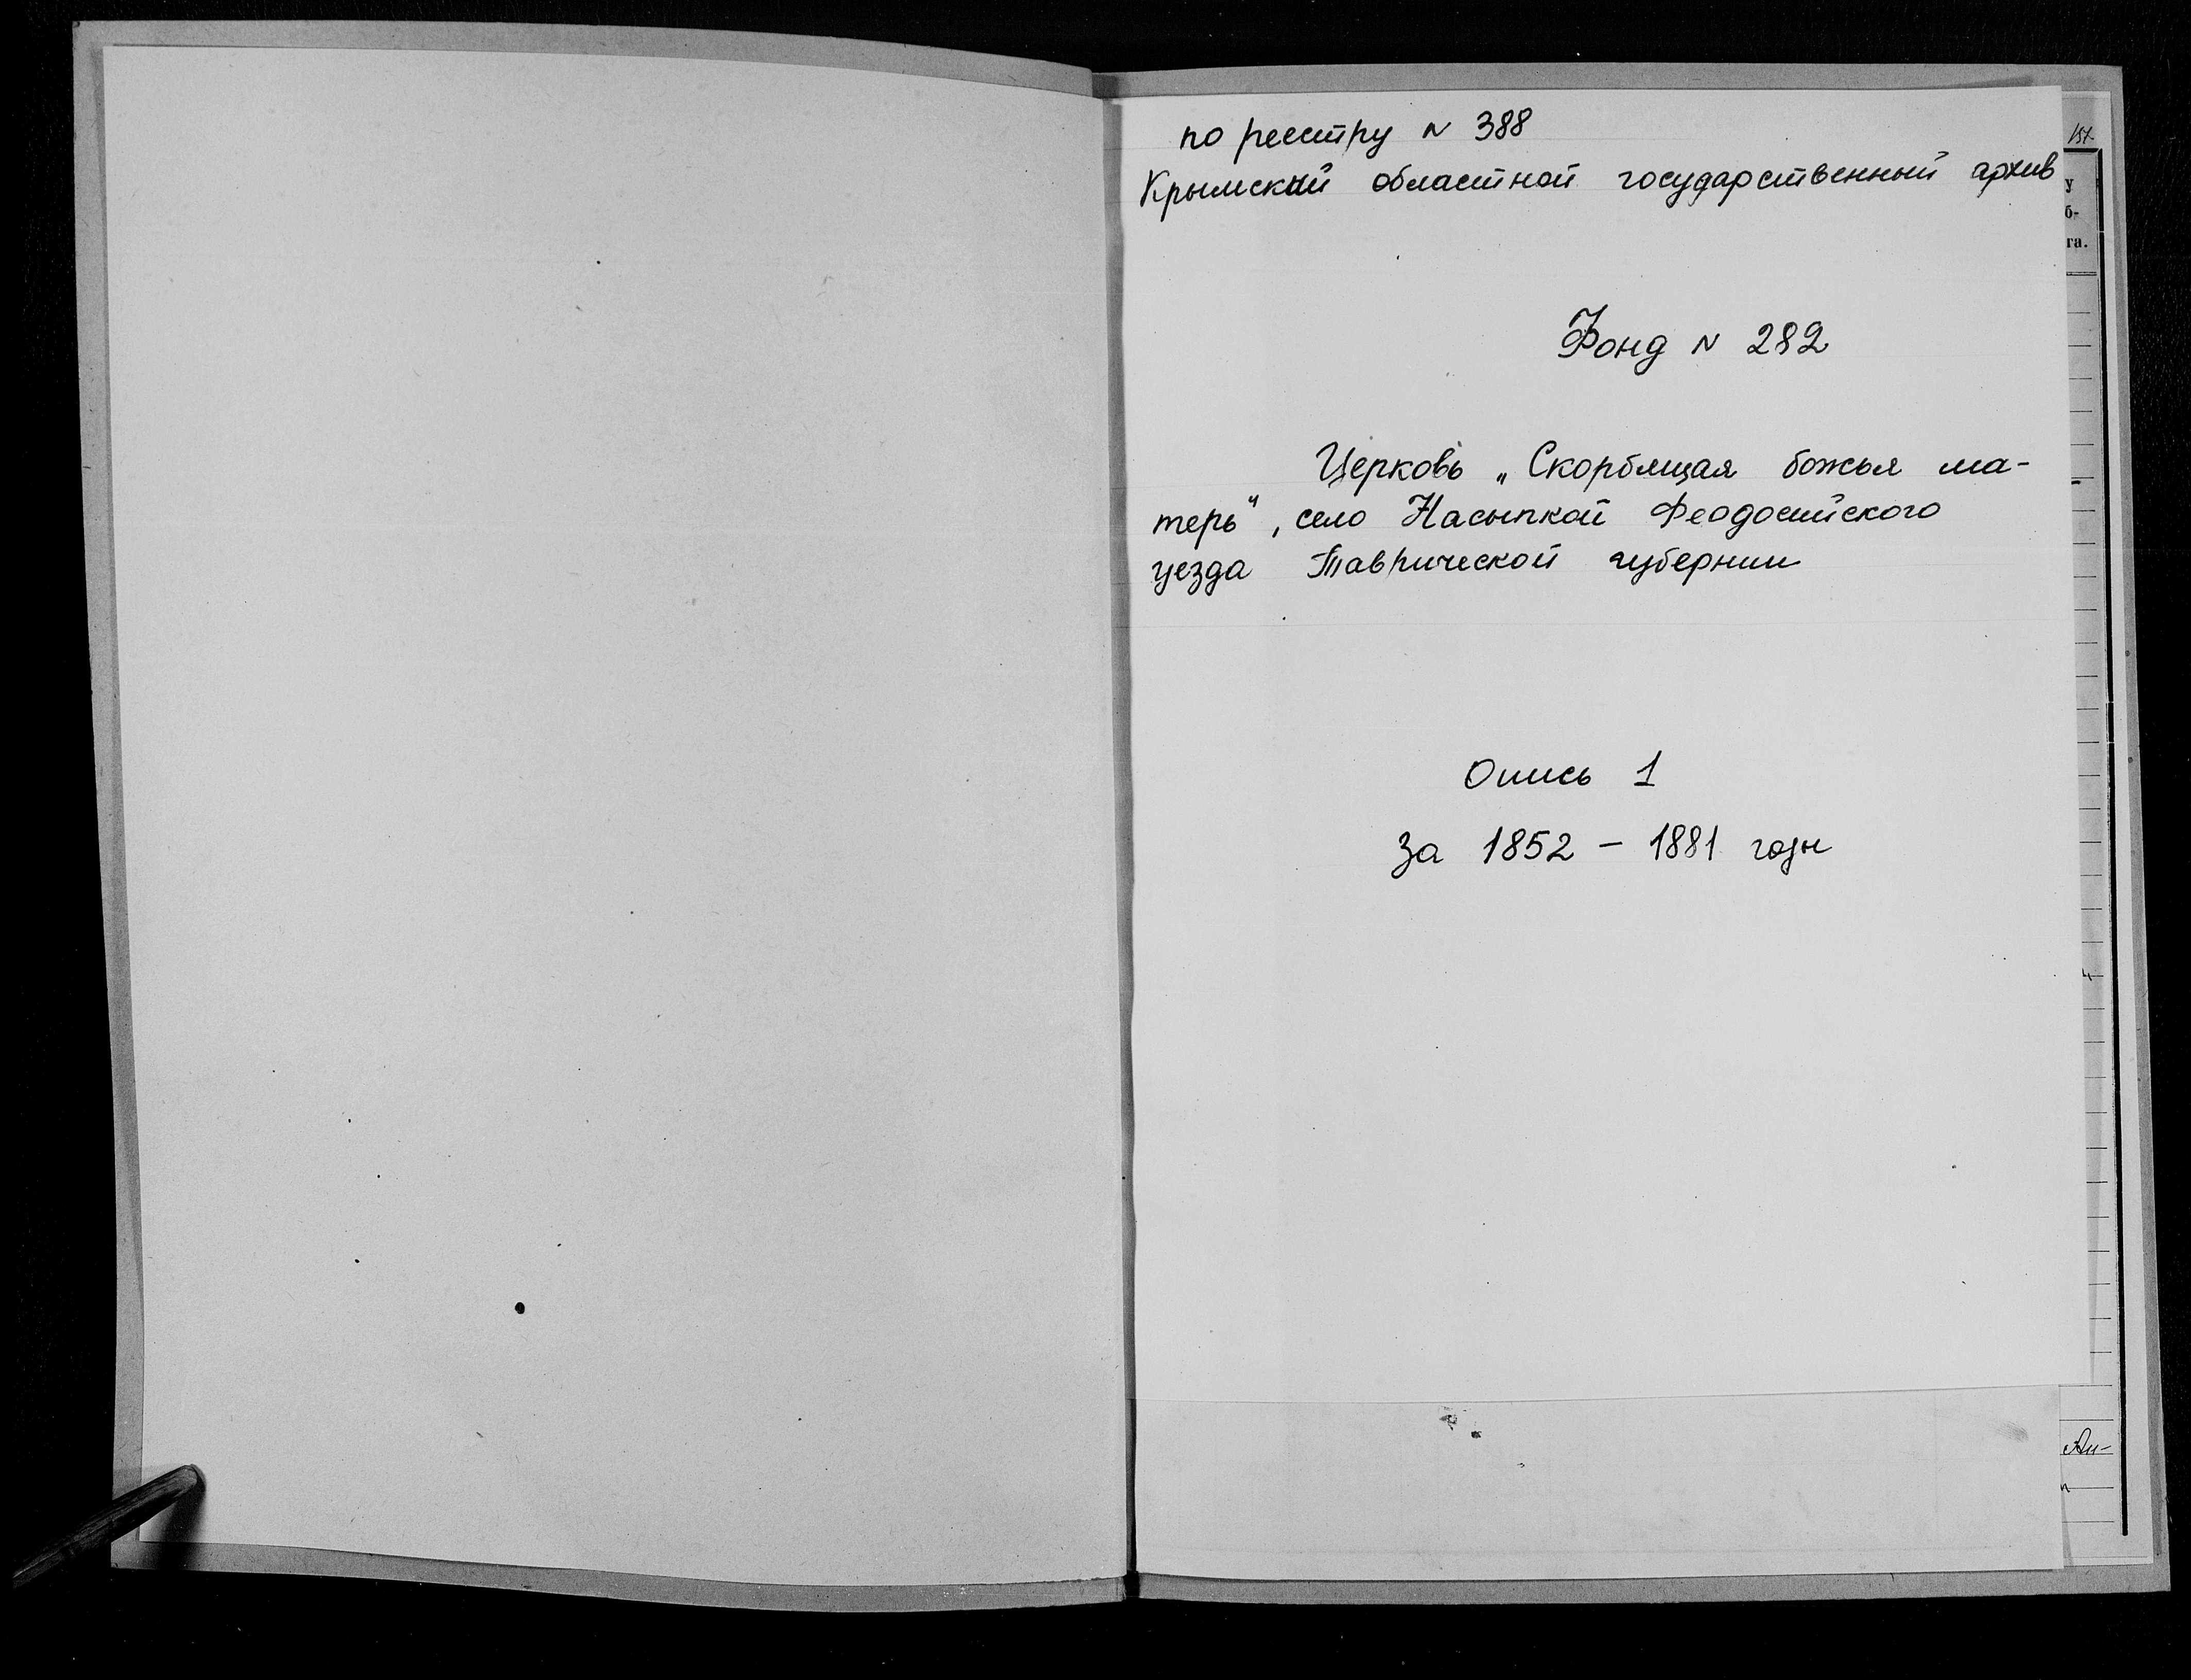 по реестру № 388
Крымский областной государственный архив
Фонд № 282
Церковь „Скорбящая божья ма-
терь", село Насыпкой Феодосийского
уезда Таврической губернии
Опись 1
за 1852 – 1881 годы
у
б-
га.